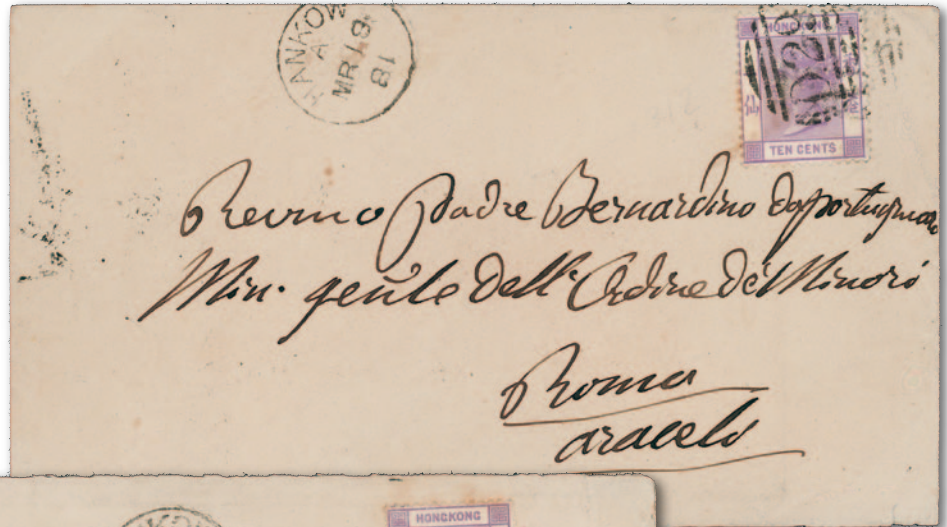 HANKOW
A
MR 18
81
HONGKONG
D29
TEN CENTS
Revmo Padre Bernardino da Portogruaro
Min. genle Dell' Ordine de' Minori
Roma
araceli
HONGKONG